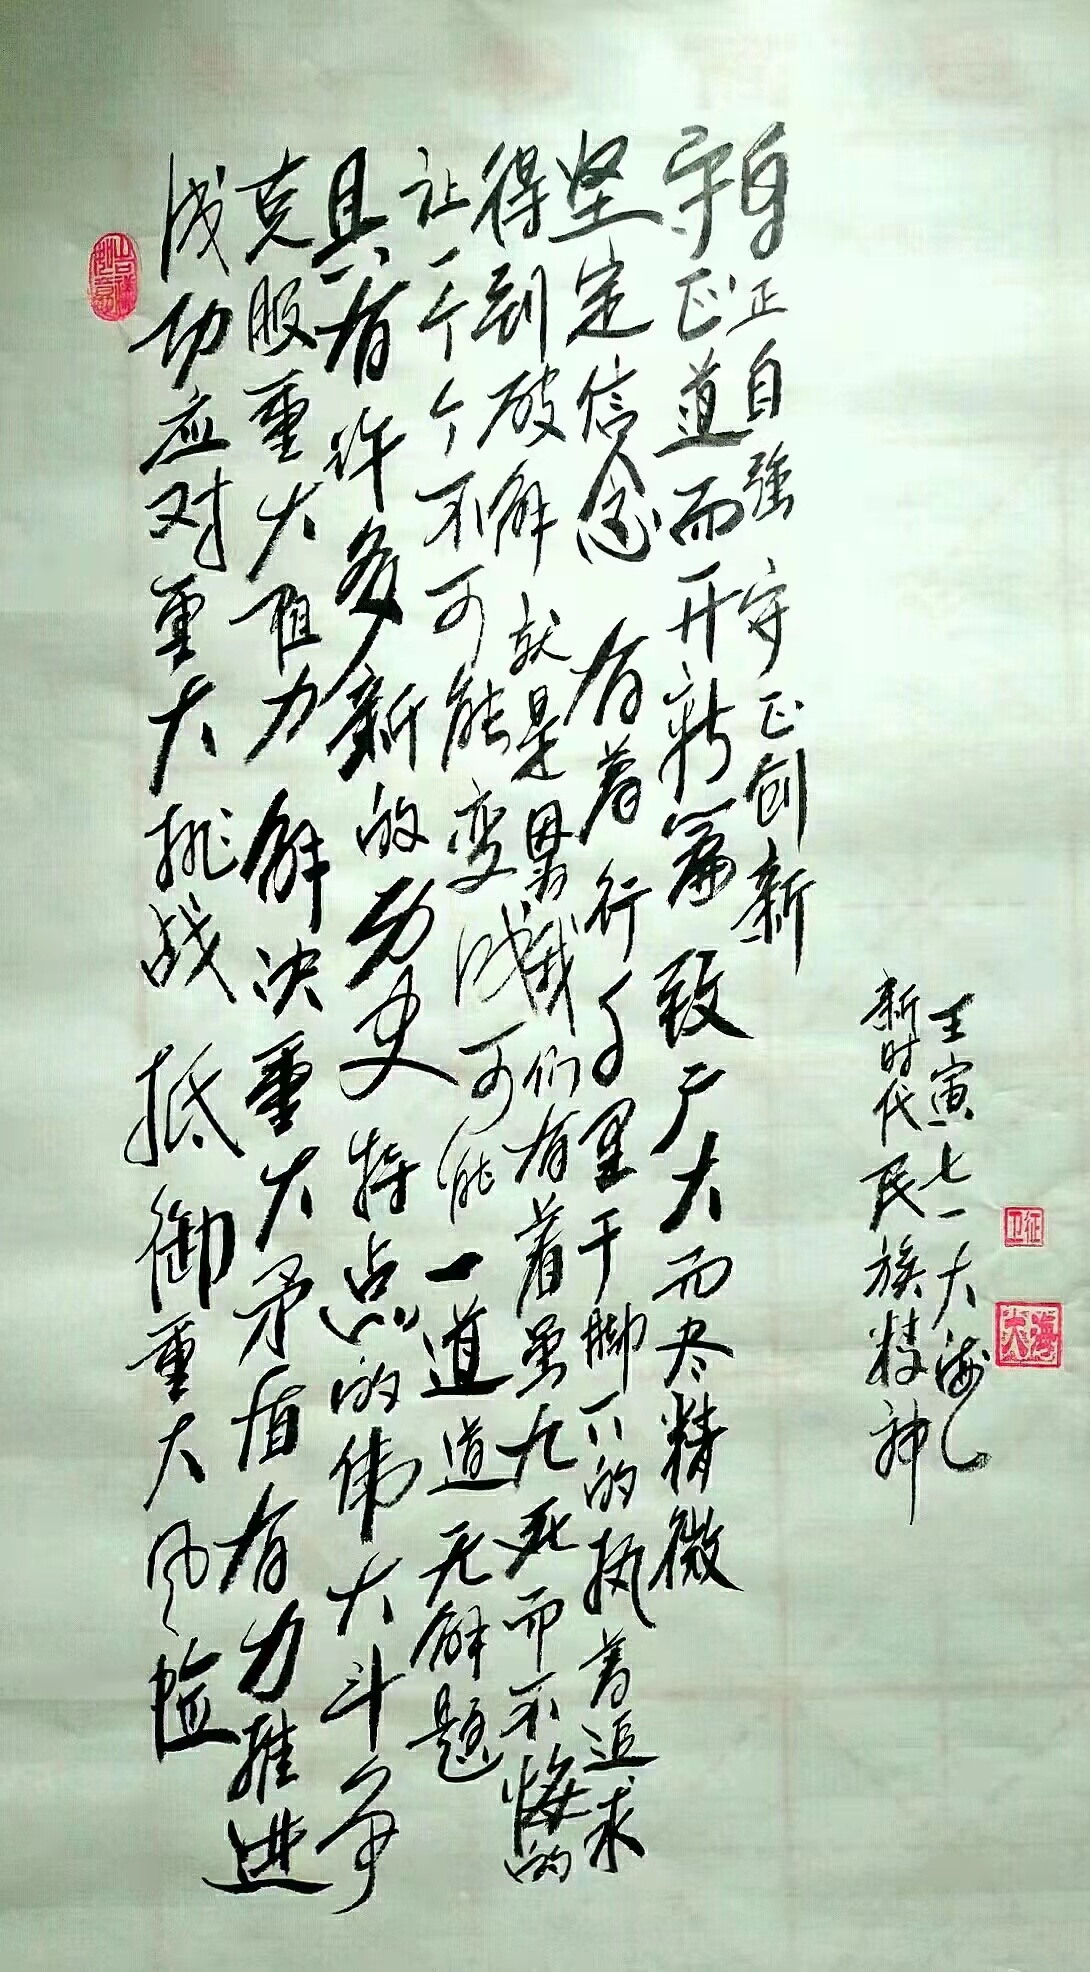 吉祥如意
成功应对重大挑战 抵御重大风险
克服重大阻力 解决重大矛盾有力推进
具有许多新的历史特点的伟大斗争
让一个个不可能变成可能 一道道无解题
得到破解 就是因为我们有着虽九死而不悔的
坚定信念 有着行千里于脚下的执着追求
守正道而开新篇 致广大而尽精微
身正自强 守正创新
新时代民族精神
壬寅七一大海
卫征
大海